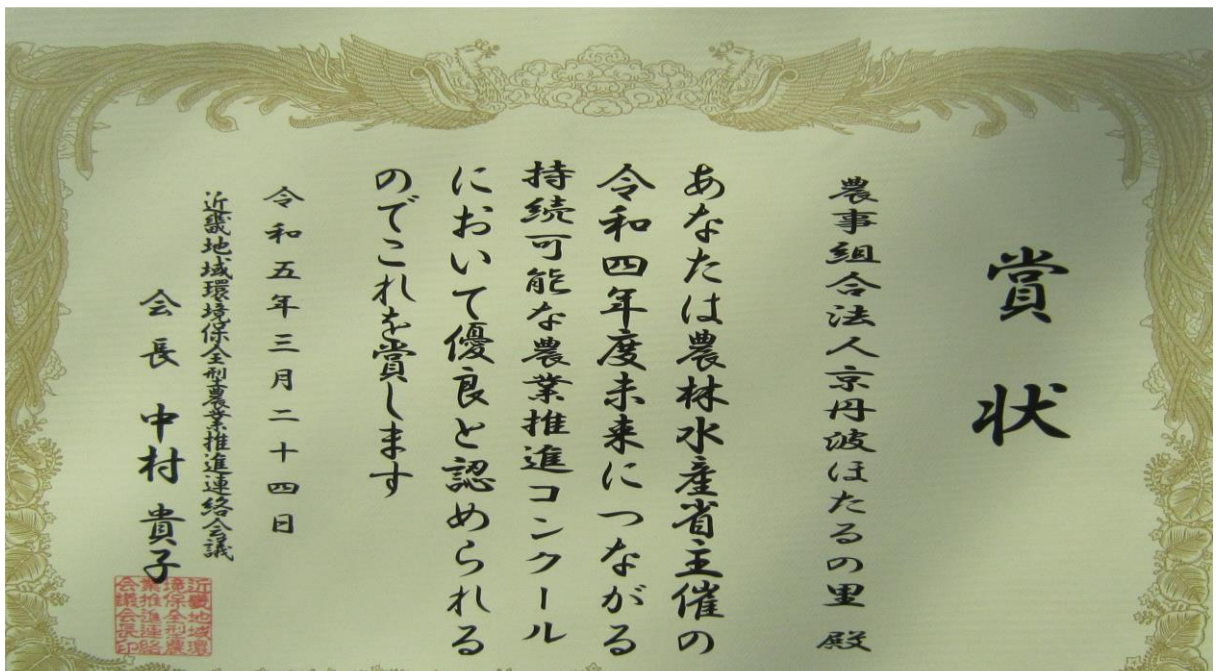 賞状
農事組合法人京丹波ほたるの里 殿
あなたは農林水産省主催の
令和四年度未来につながる
持続可能な農業推進コンクール
において優良と認められる
のでこれを賞します
令和五年三月二十四日
近畿地域環境保全型農業推進連絡会議
会長 中村 貴子
近畿地域環
境保全型農
業推進連絡
会議会長印